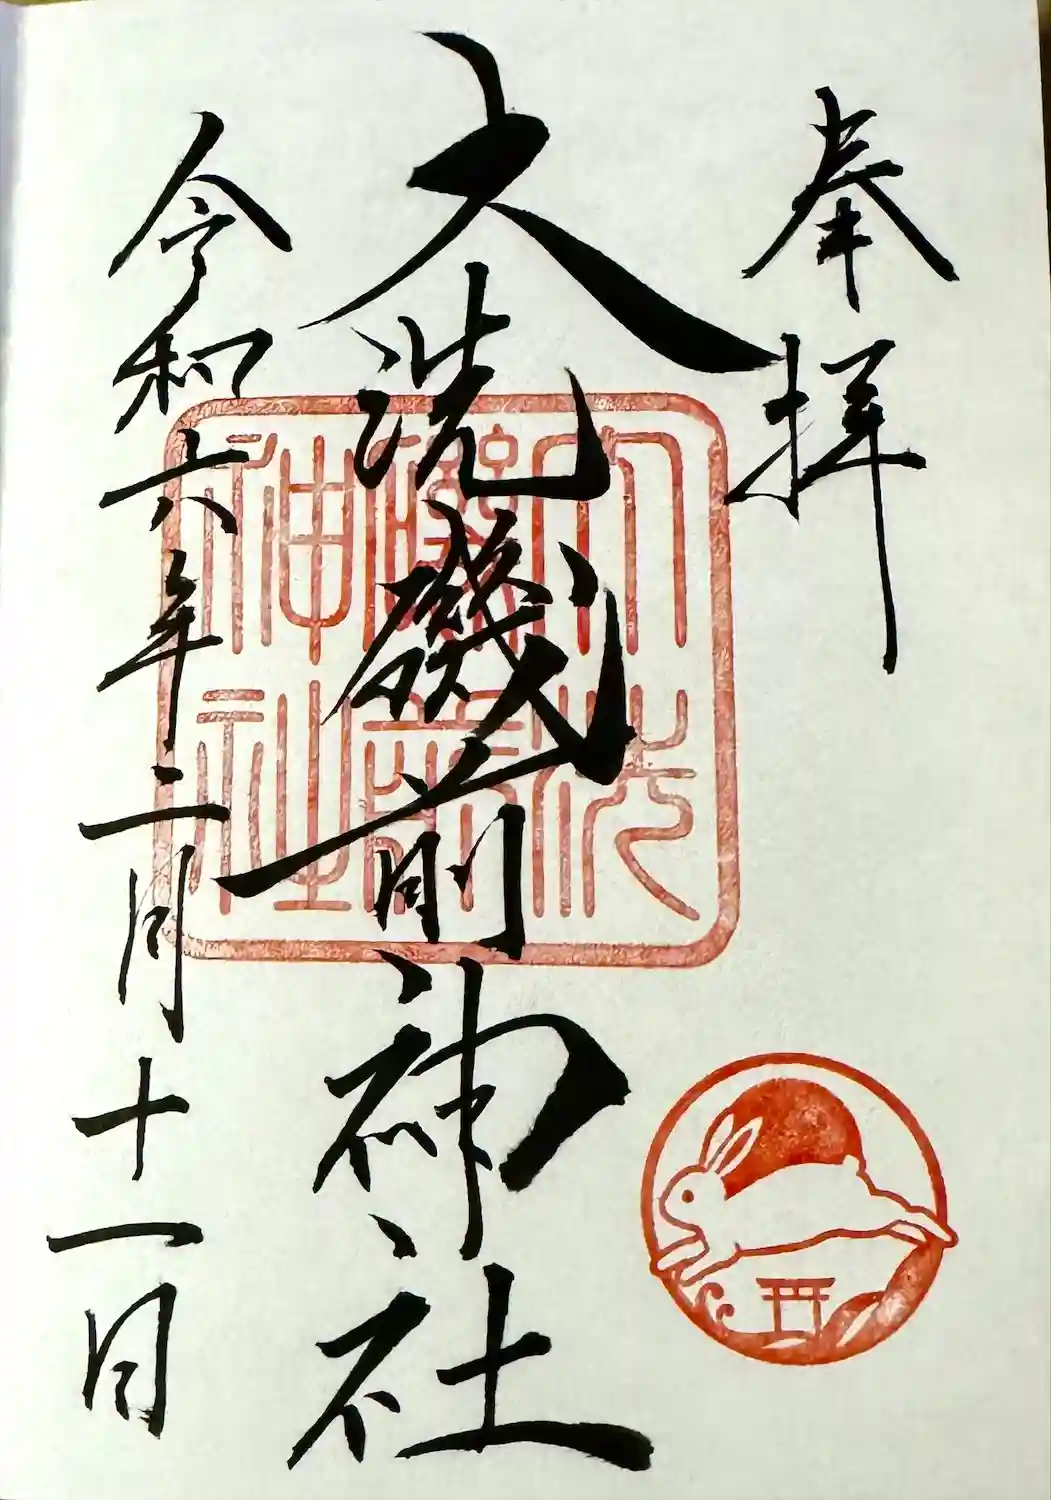 奉拝
大洗磯前神社
大洗磯前神社
令和六年二月十一日